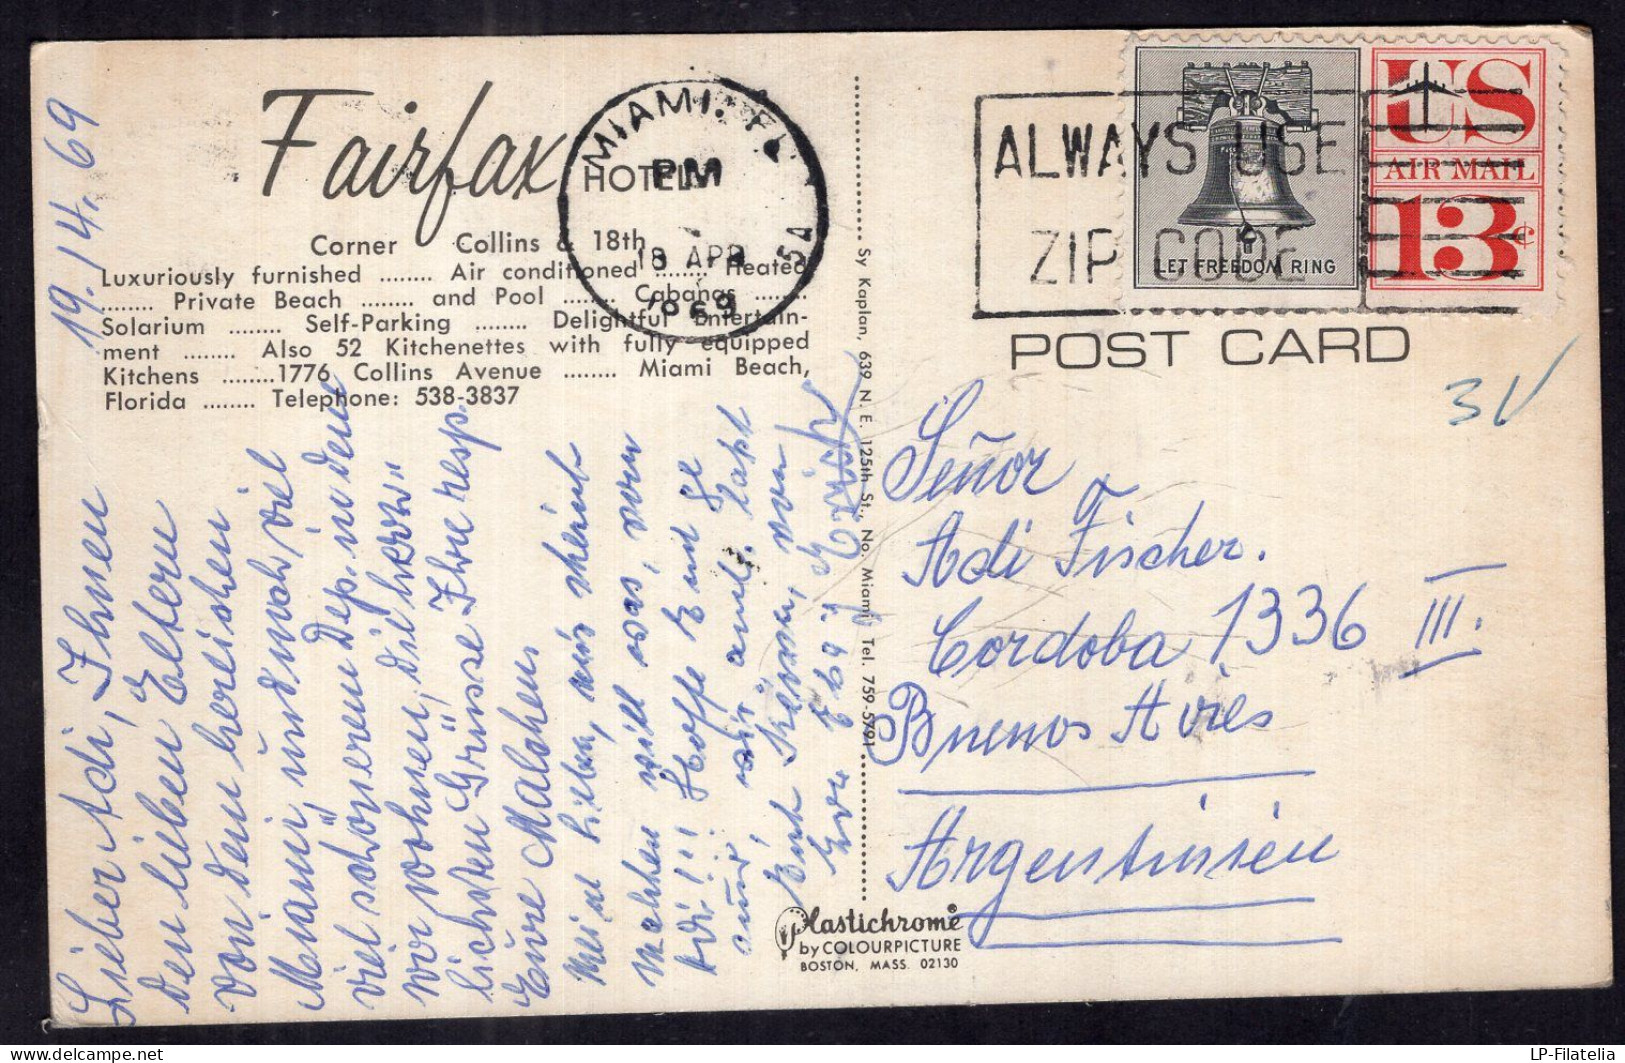 Fairfax
HOTEL
Corner Collins & 18th
Luxuriously furnished ........ Air conditioned ........ Heated
........ Private Beach ........ and Pool ........ Cabanas ........
Solarium ........ Self-Parking ........ Delightful Entertain-
ment ........ Also 52 Kitchenettes with fully equipped
Kitchens ........1776 Collins Avenue ........ Miami Beach,
Florida ........ Telephone: 538-3837
MIAMI. FLA
PM
18 APR
1969
ALWAYS USE
ZIP CODE
LET FREEDOM RING
US
AIR MAIL
13¢
POST CARD
3V
19./4. 69
Lieber Adi, Ihnen
den lieben Eltern
von dem herrlichen
Miami, und noch viel
viel schöneren Dep. in dem
wir wohnen, die herz"
lichsten Grüsse Ihre resp.
Eure Malchen
Mein
machen will was, wan
Adi!!! Hoffe
Señor
Adi Fischer.
Cordoba 1336 III.
Buenos Aires
Argentinien
Sy Kaplan, 639 N. E. 125th St., No. Miami Tel. 759-5791
Plastichrome®
by COLOURPICTURE
BOSTON, MASS. 02130
LP-Filatelia
delcampe.net